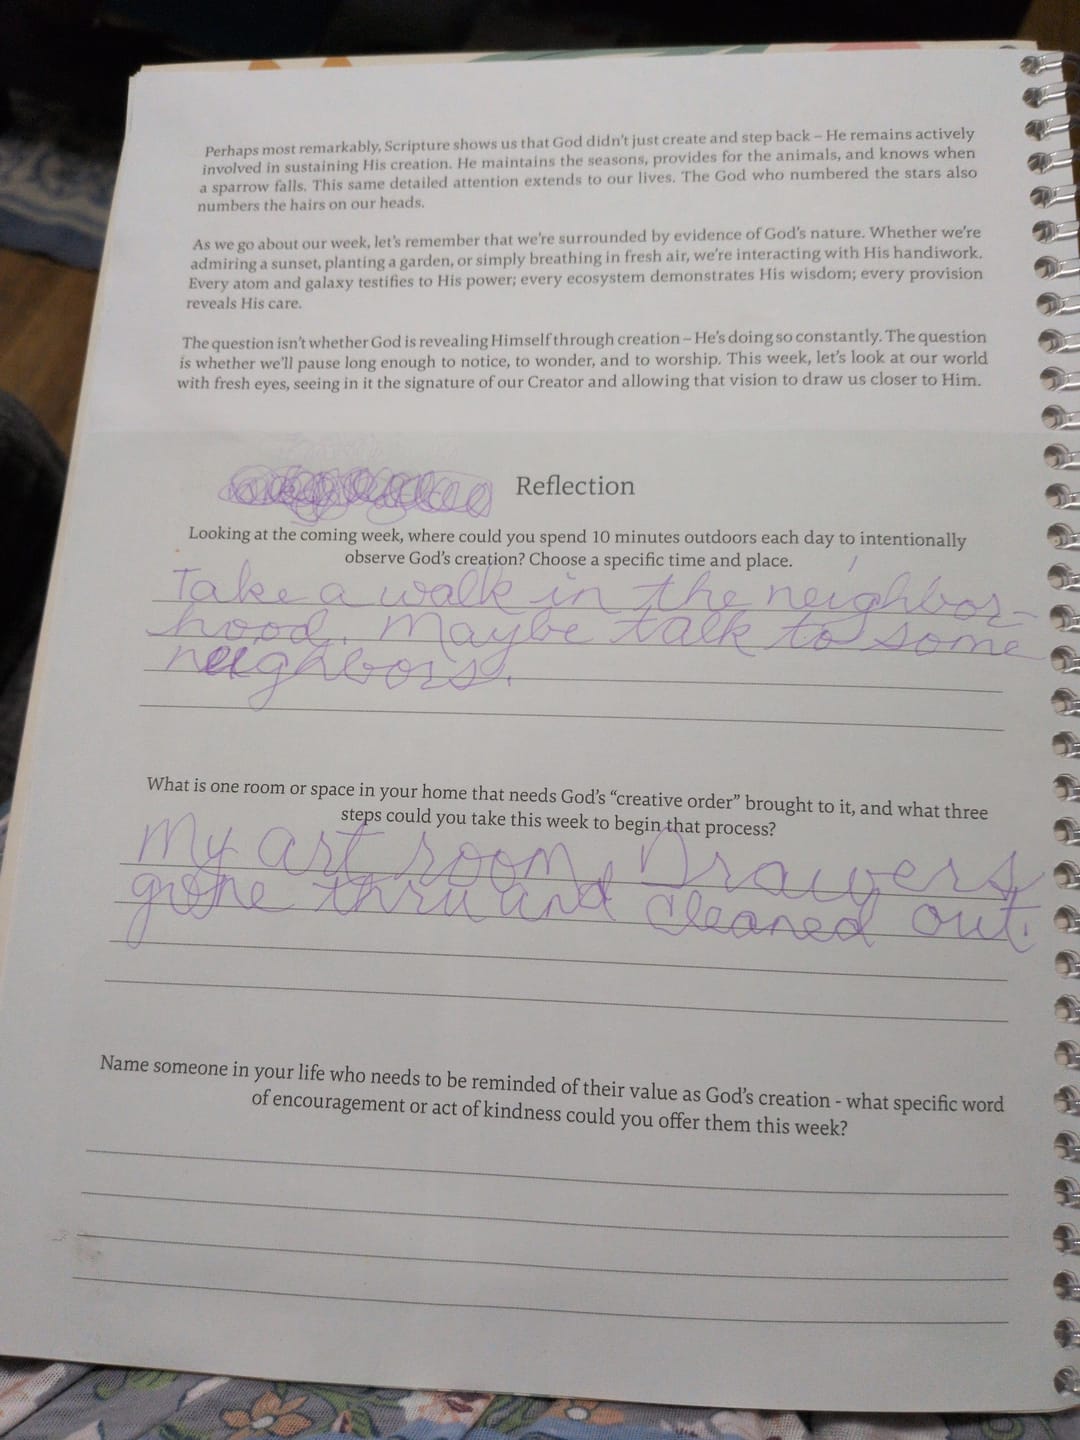 Perhaps most remarkably, Scripture shows us that God didn't just create and step back – He remains actively
involved in sustaining His creation. He maintains the seasons, provides for the animals, and knows when
a sparrow falls. This same detailed attention extends to our lives. The God who numbered the stars also
numbers the hairs on our heads.
As we go about our week, let's remember that we're surrounded by evidence of God's nature. Whether we're
admiring a sunset, planting a garden, or simply breathing in fresh air, we're interacting with His handiwork.
Every atom and galaxy testifies to His power; every ecosystem demonstrates His wisdom; every provision
reveals His care.
The question isn't whether God is revealing Himself through creation – He's doing so constantly. The question
is whether we'll pause long enough to notice, to wonder, and to worship. This week, let's look at our world
with fresh eyes, seeing in it the signature of our Creator and allowing that vision to draw us closer to Him.
Reflection
Looking at the coming week, where could you spend 10 minutes outdoors each day to intentionally
observe God's creation? Choose a specific time and place.
Take a walk in the neighbor-
hood. Maybe talk to some
neighbors.
What is one room or space in your home that needs God's “creative order” brought to it, and what three
steps could you take this week to begin that process?
My art room. Drawers
gone thru and cleaned out.
Name someone in your life who needs to be reminded of their value as God's creation - what specific word
of encouragement or act of kindness could you offer them this week?